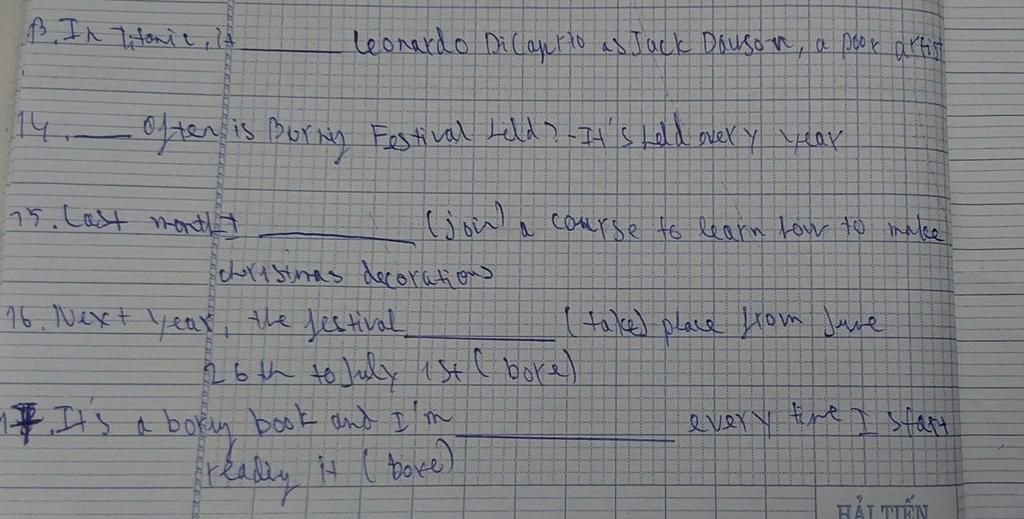 13. In Titanic, it ________ Leonardo DiCaprio as Jack Dawson, a poor artist
14. ____ Often is Burning Festival held? - It's held every year
15. Last month I ________ (join) a course to learn how to make
christmas decorations
16. Next year, the festival ________ (take) place from June
26th to July 1st (bore)
17. It's a boring book and I'm ________ every time I start
reading it (bore)
HẢI TIẾN